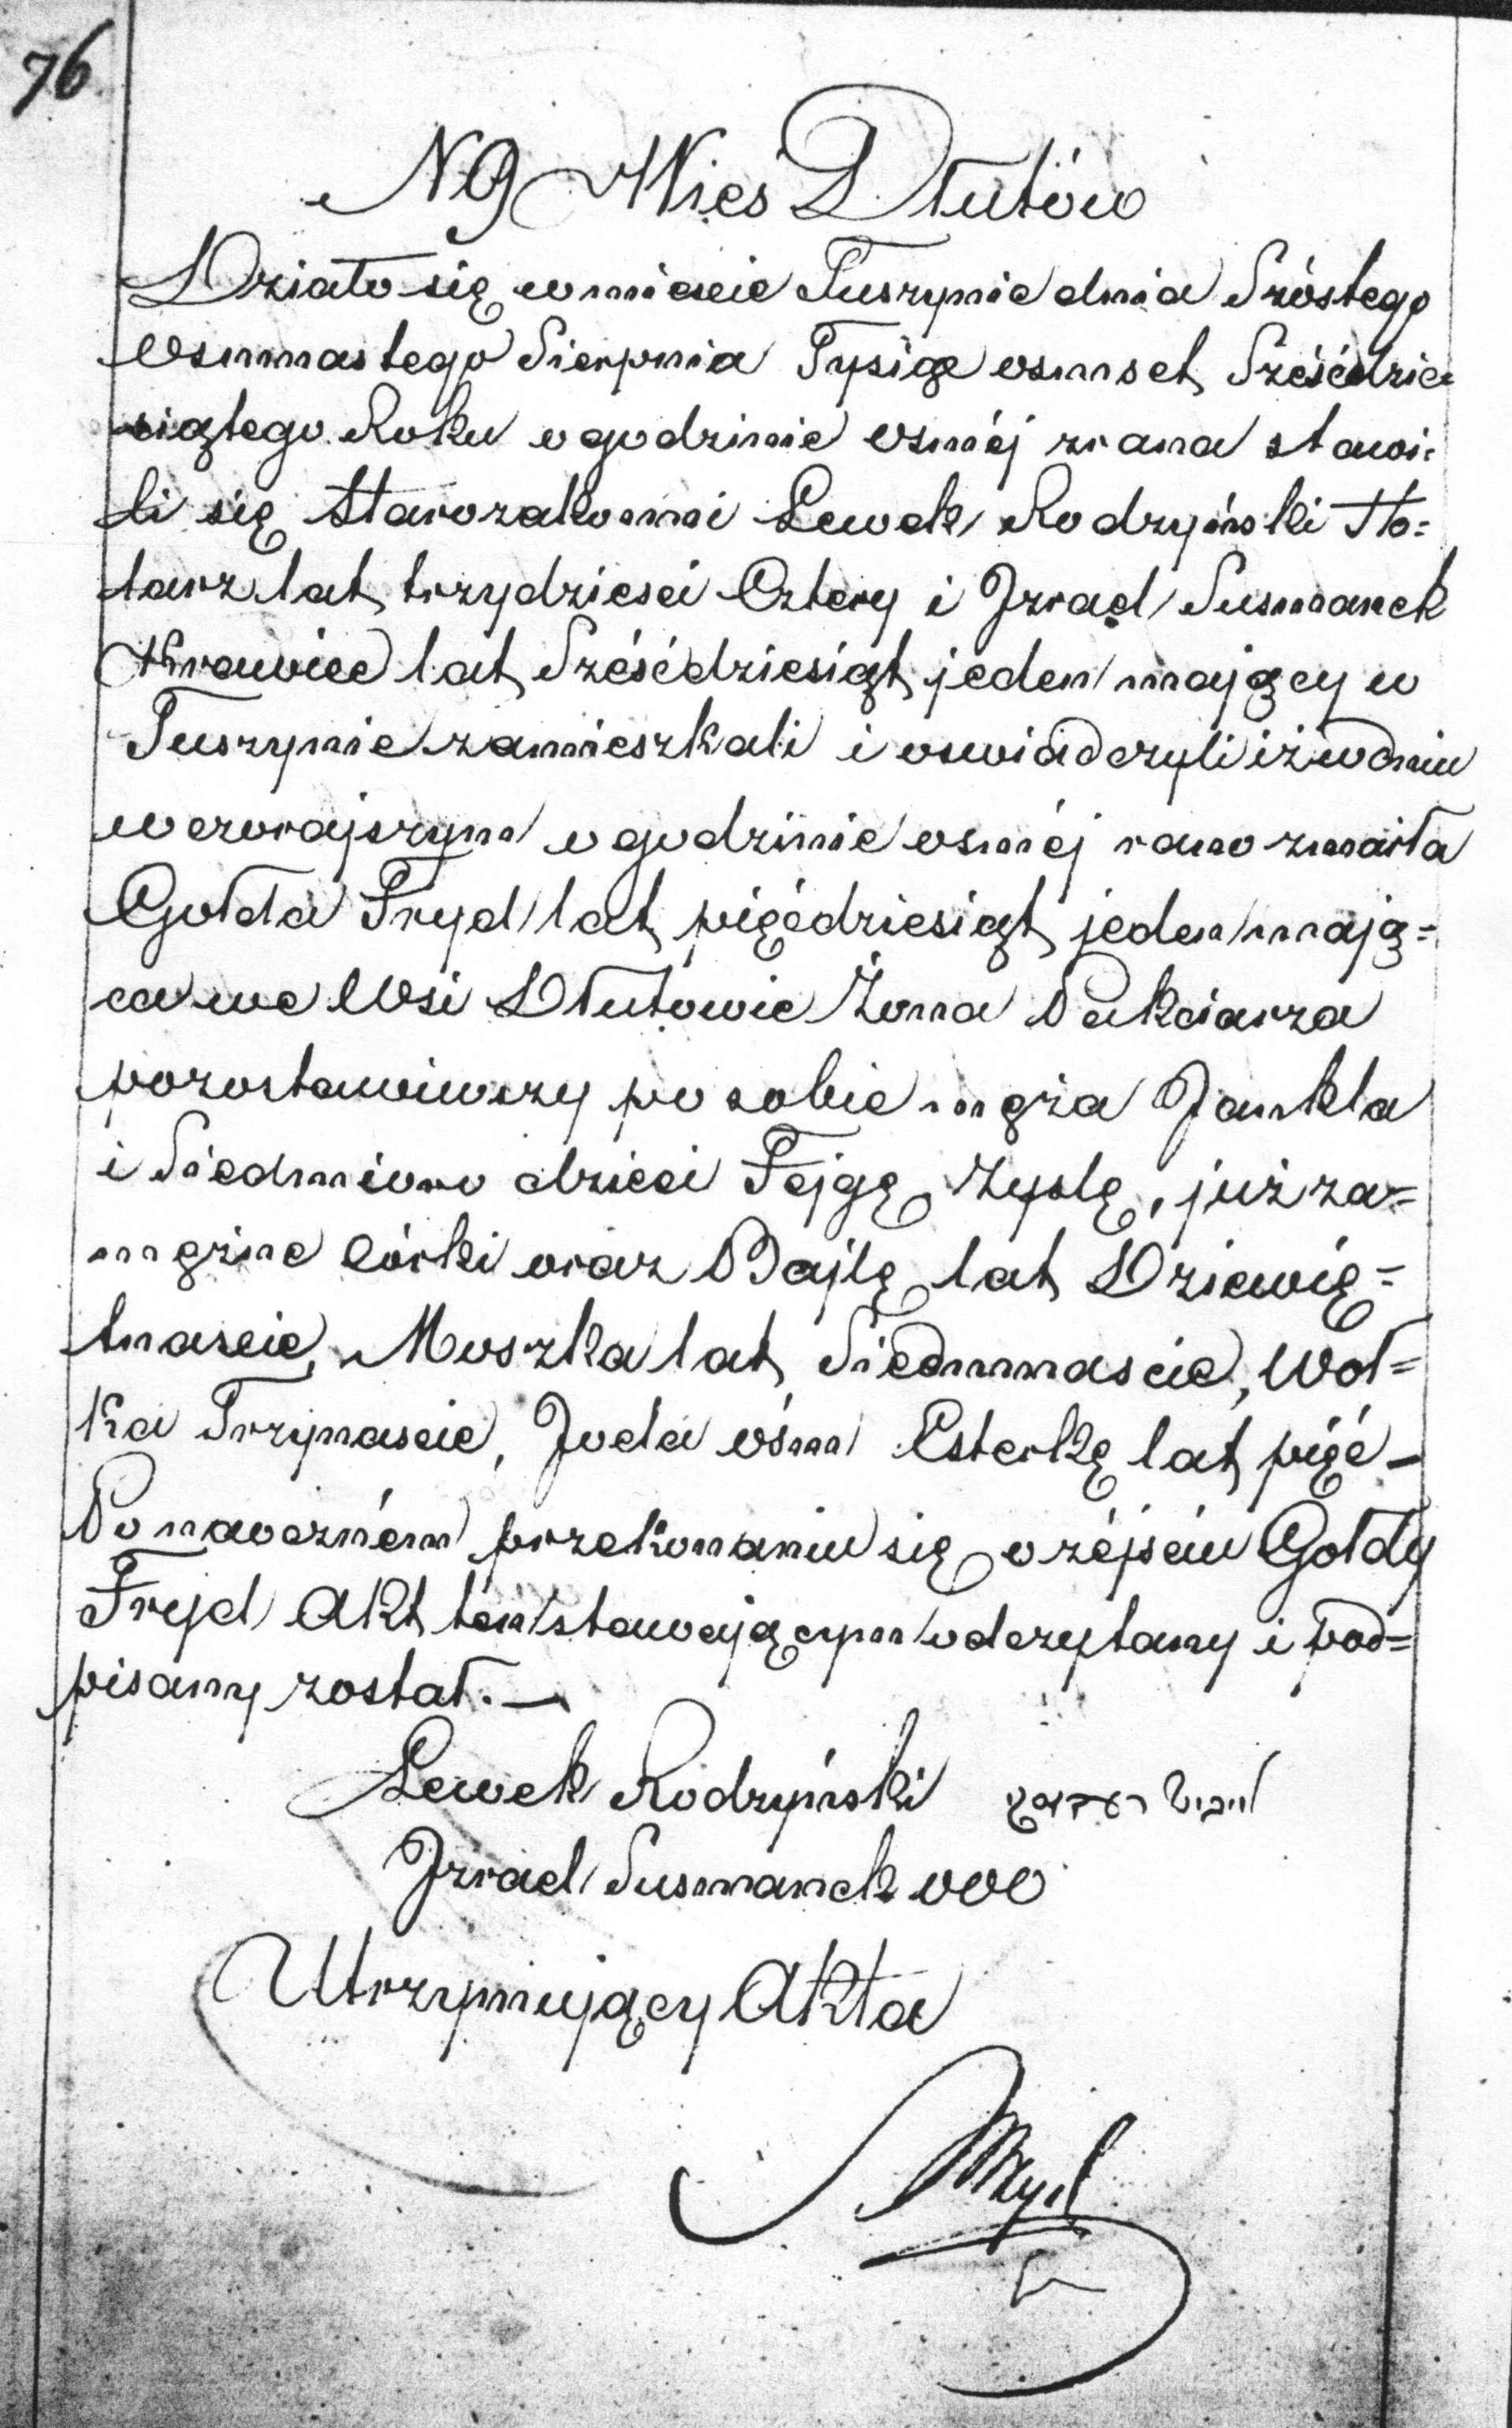 76
N 9 Wieś Dłutów
Działo się w mieście Tuszynie dnia Szóstego
Osmnastego Sierpnia Tysiąc osmset Sześćdzie
siątego Roku o godzinie osméj zrana stawi-
li się Starozakonni Lewek Rodzyński Ko=
larz lat trzydzieści Cztery i Jzrael Susmanek
Krawiec lat Sześćdziesiąt jeden mający w
Tuszynie zamieszkali i oswiadczyli iż w dniu
wczorajszym o godzinie osméj rano zmarła
Gołda Fryd lat pięćdziesiąt jeden mają=
ca we Wsi Dłutowie Żona Pakciarza
pozostawiwszy po sobie męża Jankla
i Siedmioro dzieci Fejgę, Zyslę, już za=
mężne córki oraz Bajlę lat Dziewię=
tnaście, Moszka lat Siedmnaście, Wol=
ka Trzynaście, Joela ośm Esterkę lat pięć –
Po naoczném przekonaniu się o zéjściu Gołdy
Fryd Akt ten stawającym odczytany i pod=
pisany został. —
Lewek Rodzyński
Jzrael Susmanek ooo
Utrzymujący Akta